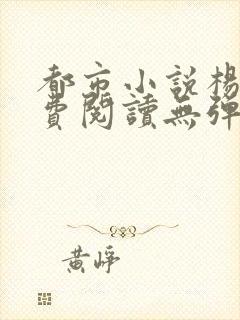 都市小說楊
費閱讀無彈
黃崢